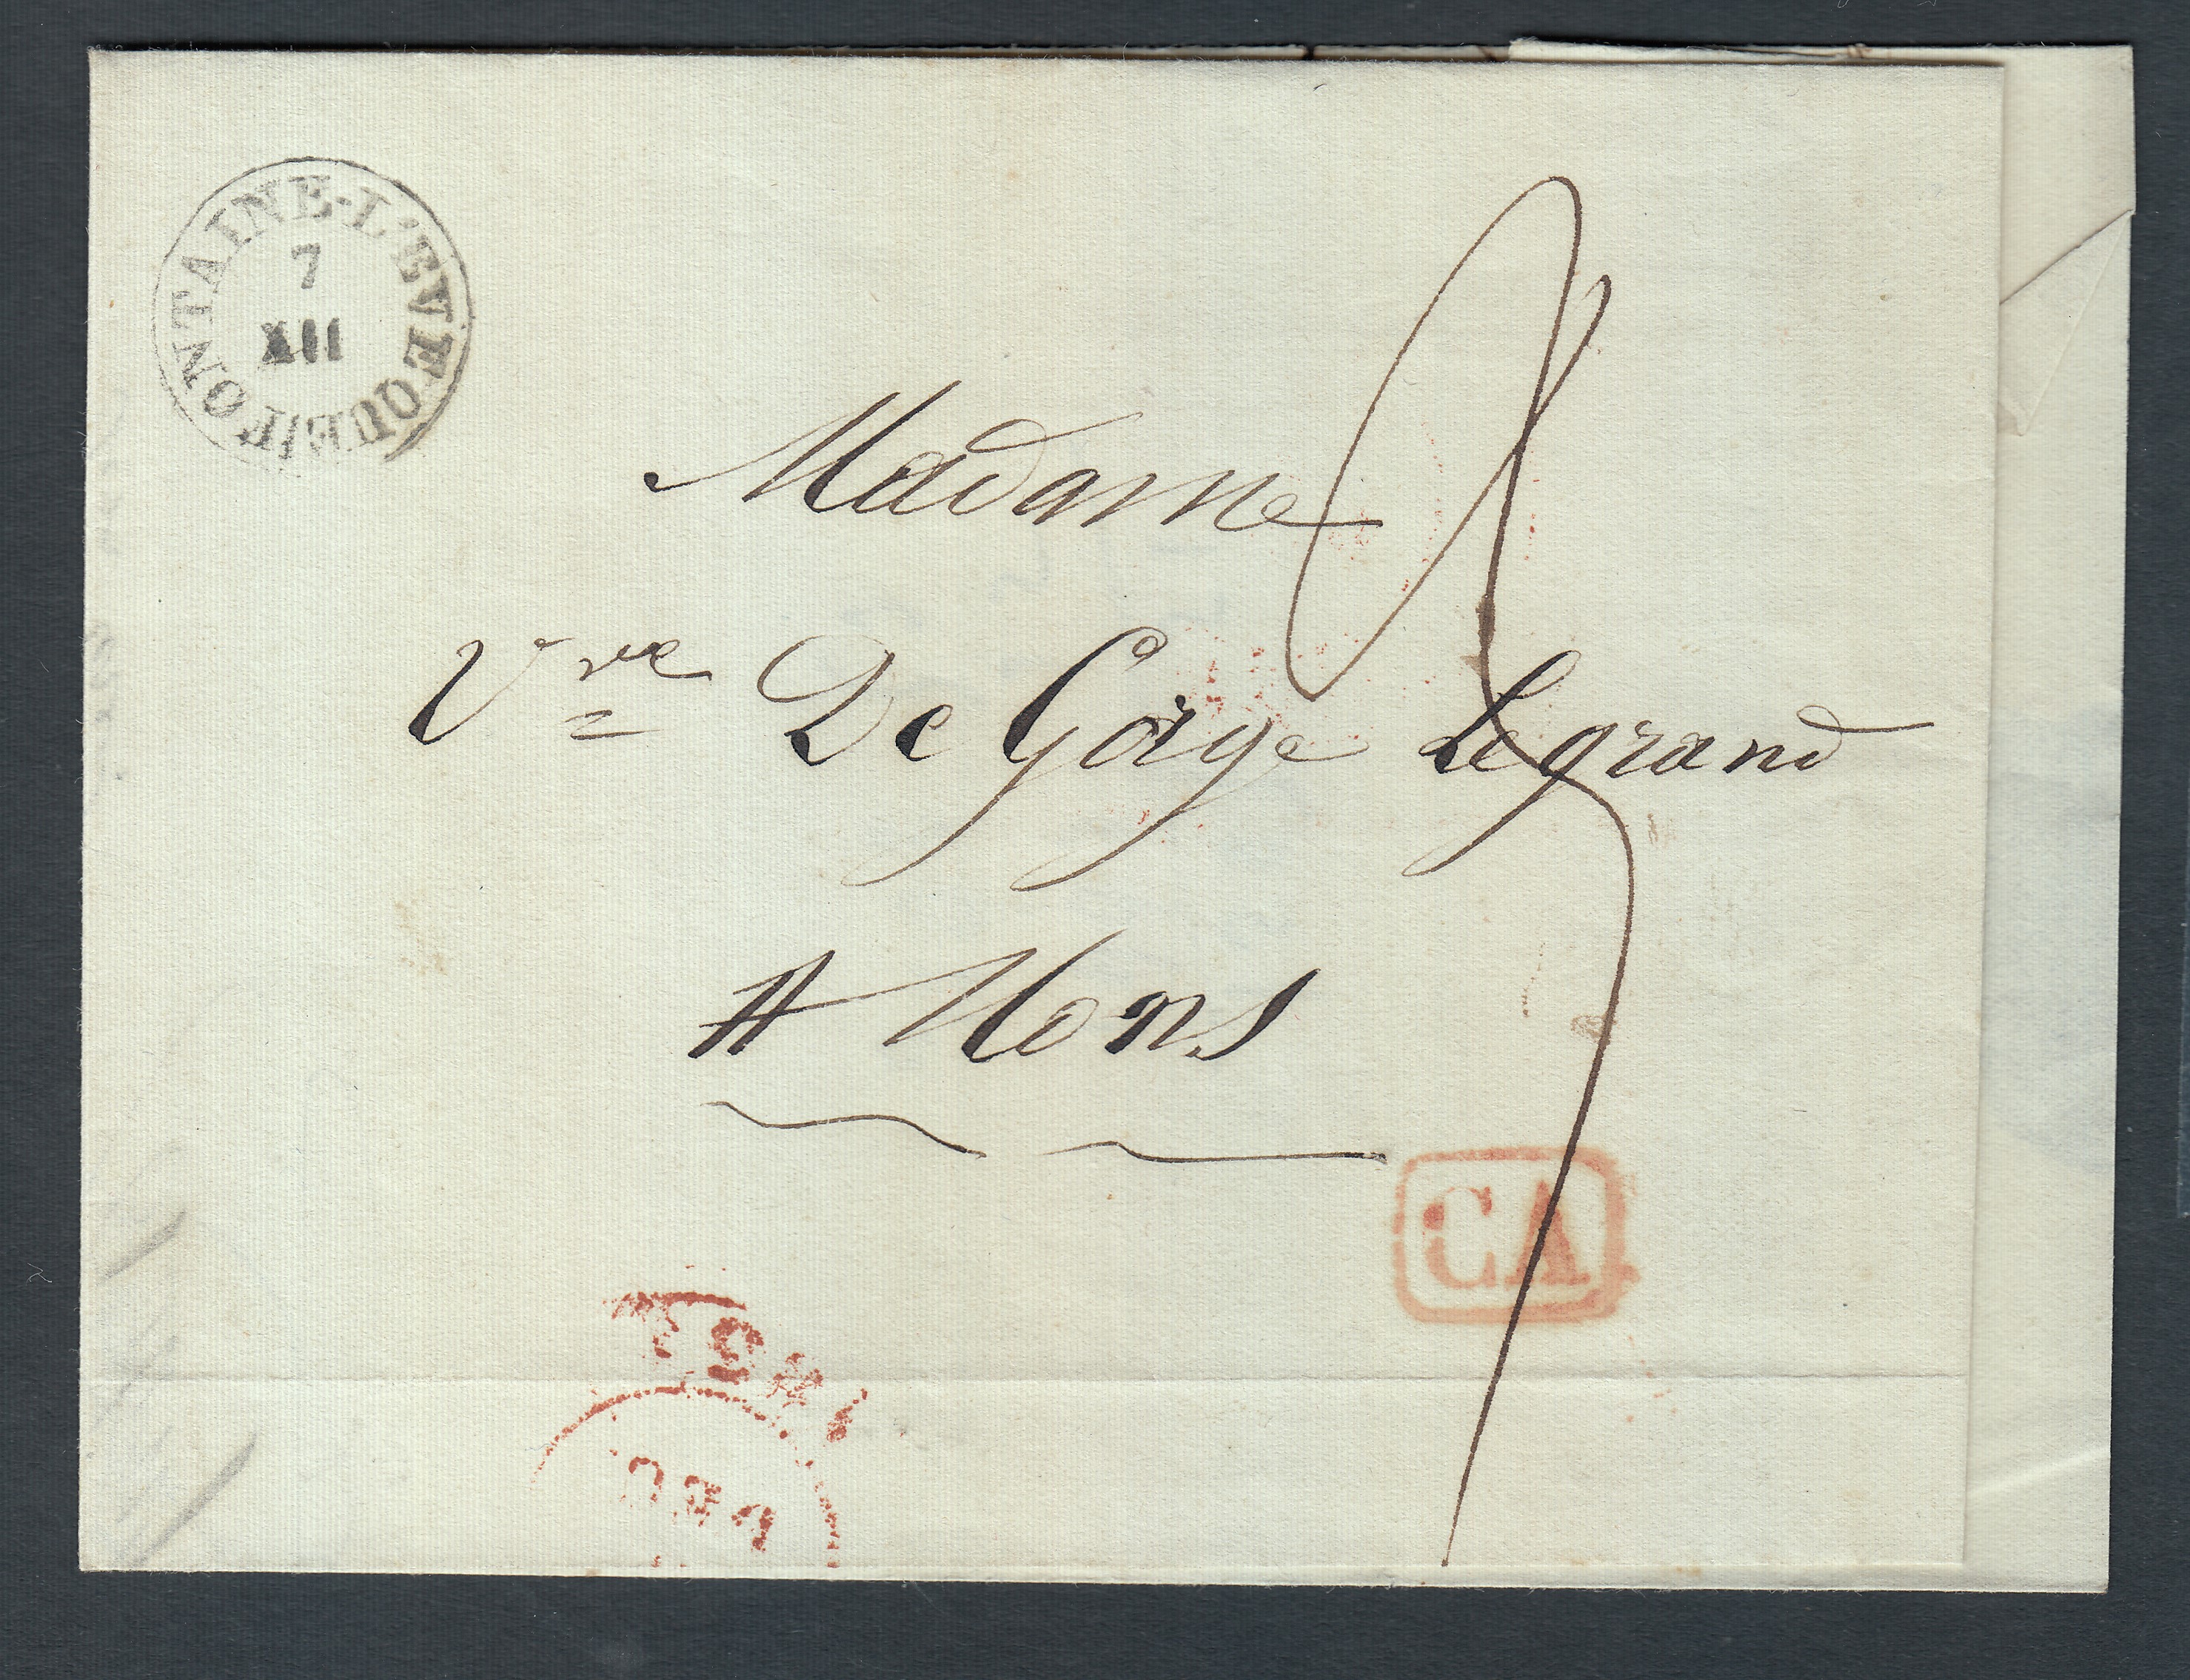 FONTAINE-L'EVEQUE
7
XII
Madame
Vve De Gorge Legrand
A Mons
CA